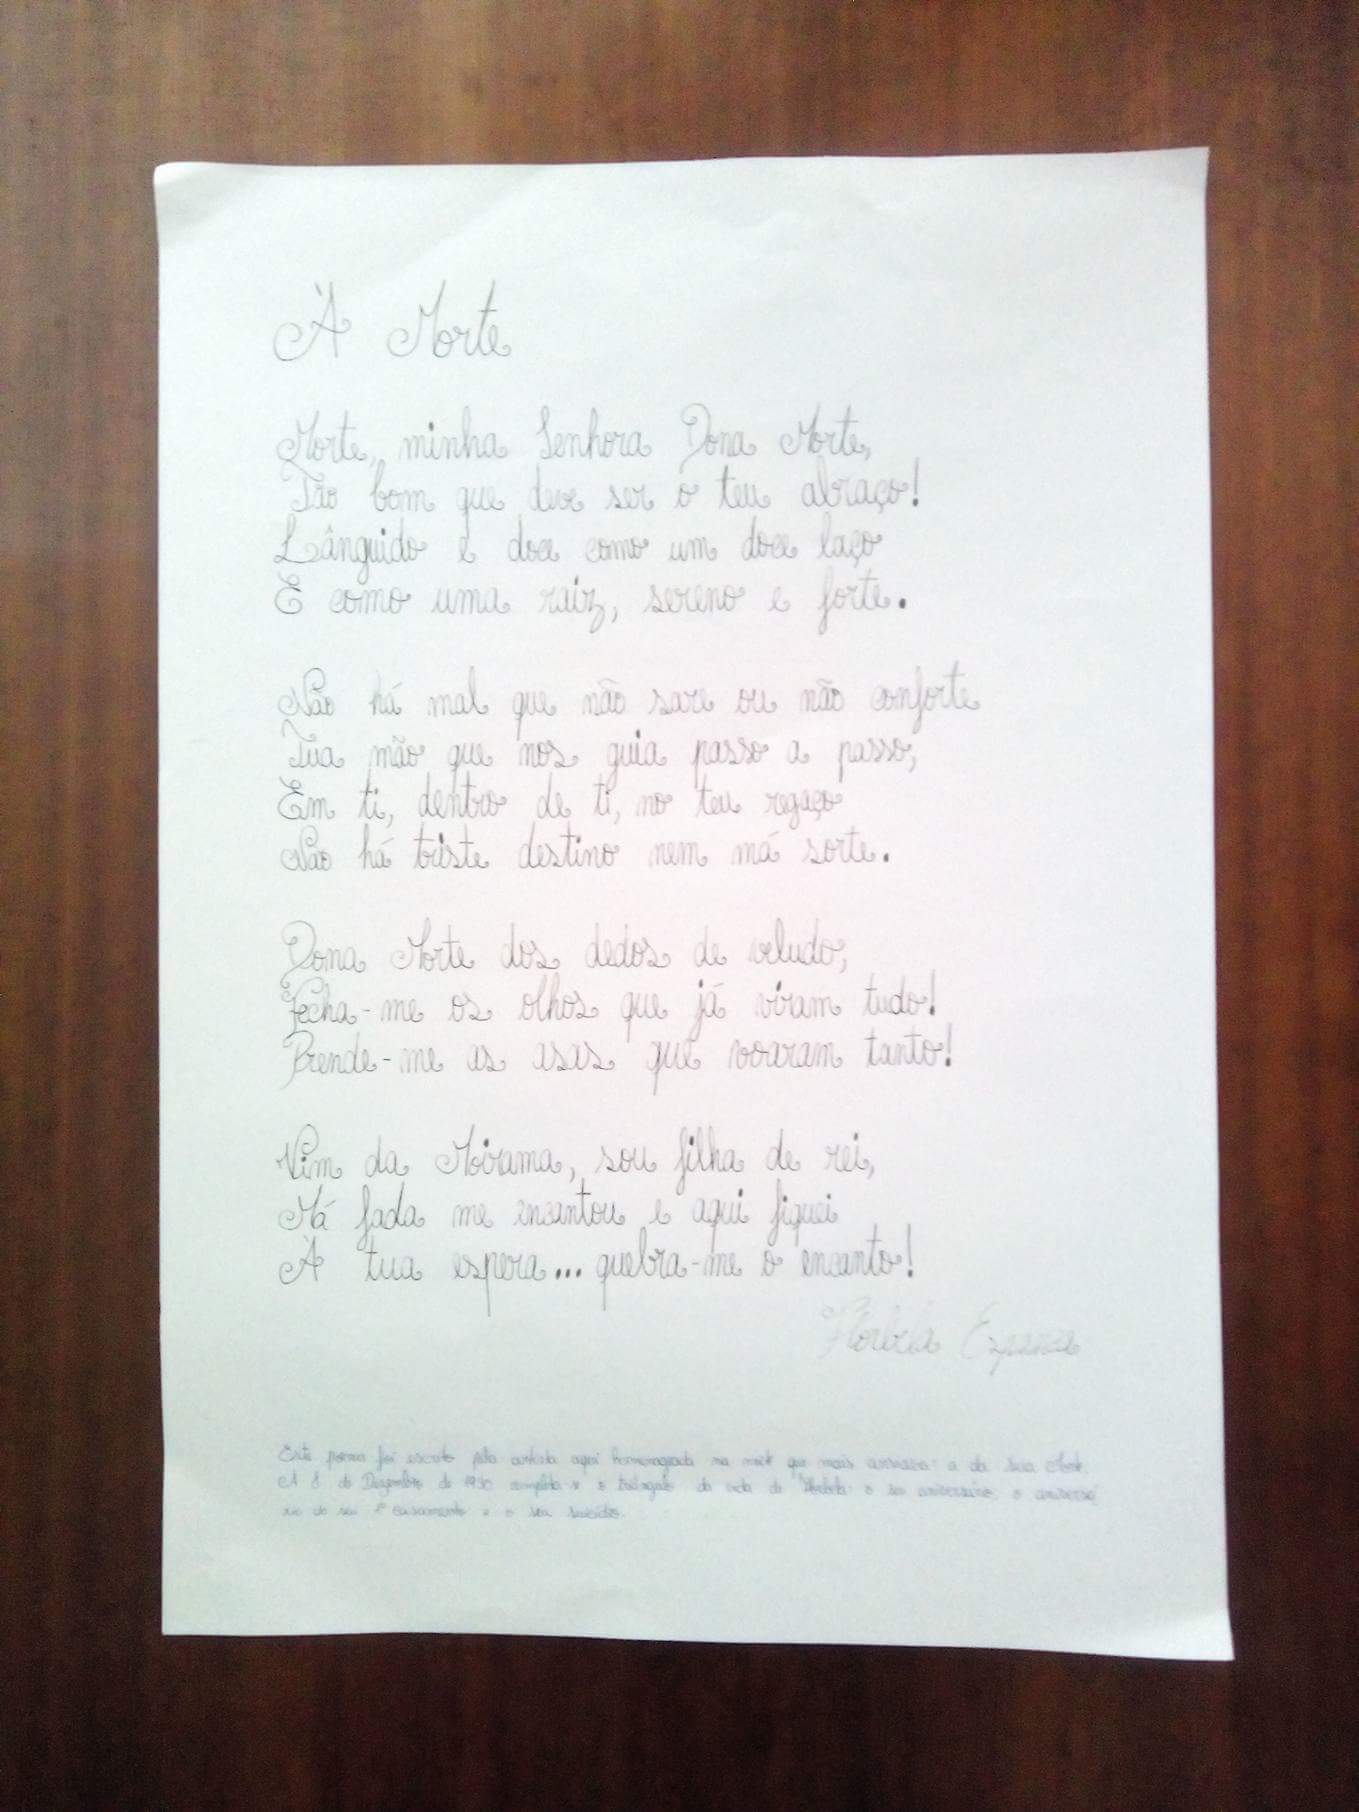 À Morte
Morte, minha Senhora Dona Morte,
Tão bom que deve ser o teu abraço!
Lânguido e doce como um doce laço
E como uma raiz, sereno e forte.
Não há mal que não sare ou não conforte
Tua mão que nos guia passo a passo,
Em ti, dentro de ti, no teu regaço
Não há triste destino nem má sorte.
Dona Morte dos dedos de veludo,
Fecha-me os olhos que já viram tudo!
Prende-me as asas que voaram tanto!
Vim da Moirama, sou filha de rei,
Má fada me encantou e aqui fiquei
À tua espera... quebra-me o encanto!
Florbela Espanca
Este poema foi escrito pela artista aqui homenageada na noite que mais ansiava: a da sua Morte.
A 8 de Dezembro de 1930 completa-se o triângulo da vida de Florbela: o seu aniversário, o aniversá
rio do seu 1º casamento e o seu suicídio.